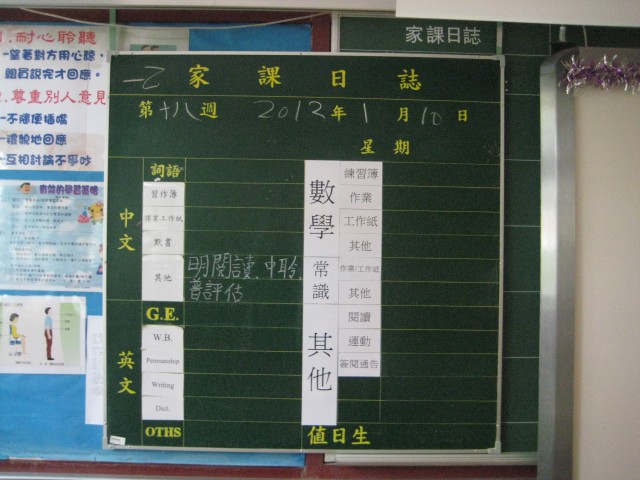 家課日誌
耐心聆聽
一望著對方用心聽,
聽員説完才回應。
尊重別人意見
一不隨便插嘴
一禮貌地回應
一互相討論不爭吵
有效的學習策略
一乙 家課日誌
第十八週 2012年1月10日
星期
中文
詞語
習作簿
課業工作紙
默書
其他 明閱讀、中聆、
普評估
英文
G.E.
W.B.
Penmanship
Writing
Dict.
OTHS
數學
練習簿
作業
工作紙
其他
常識
作業/工作紙
其他
其他
閱讀
運動
簽閱通告
值日生